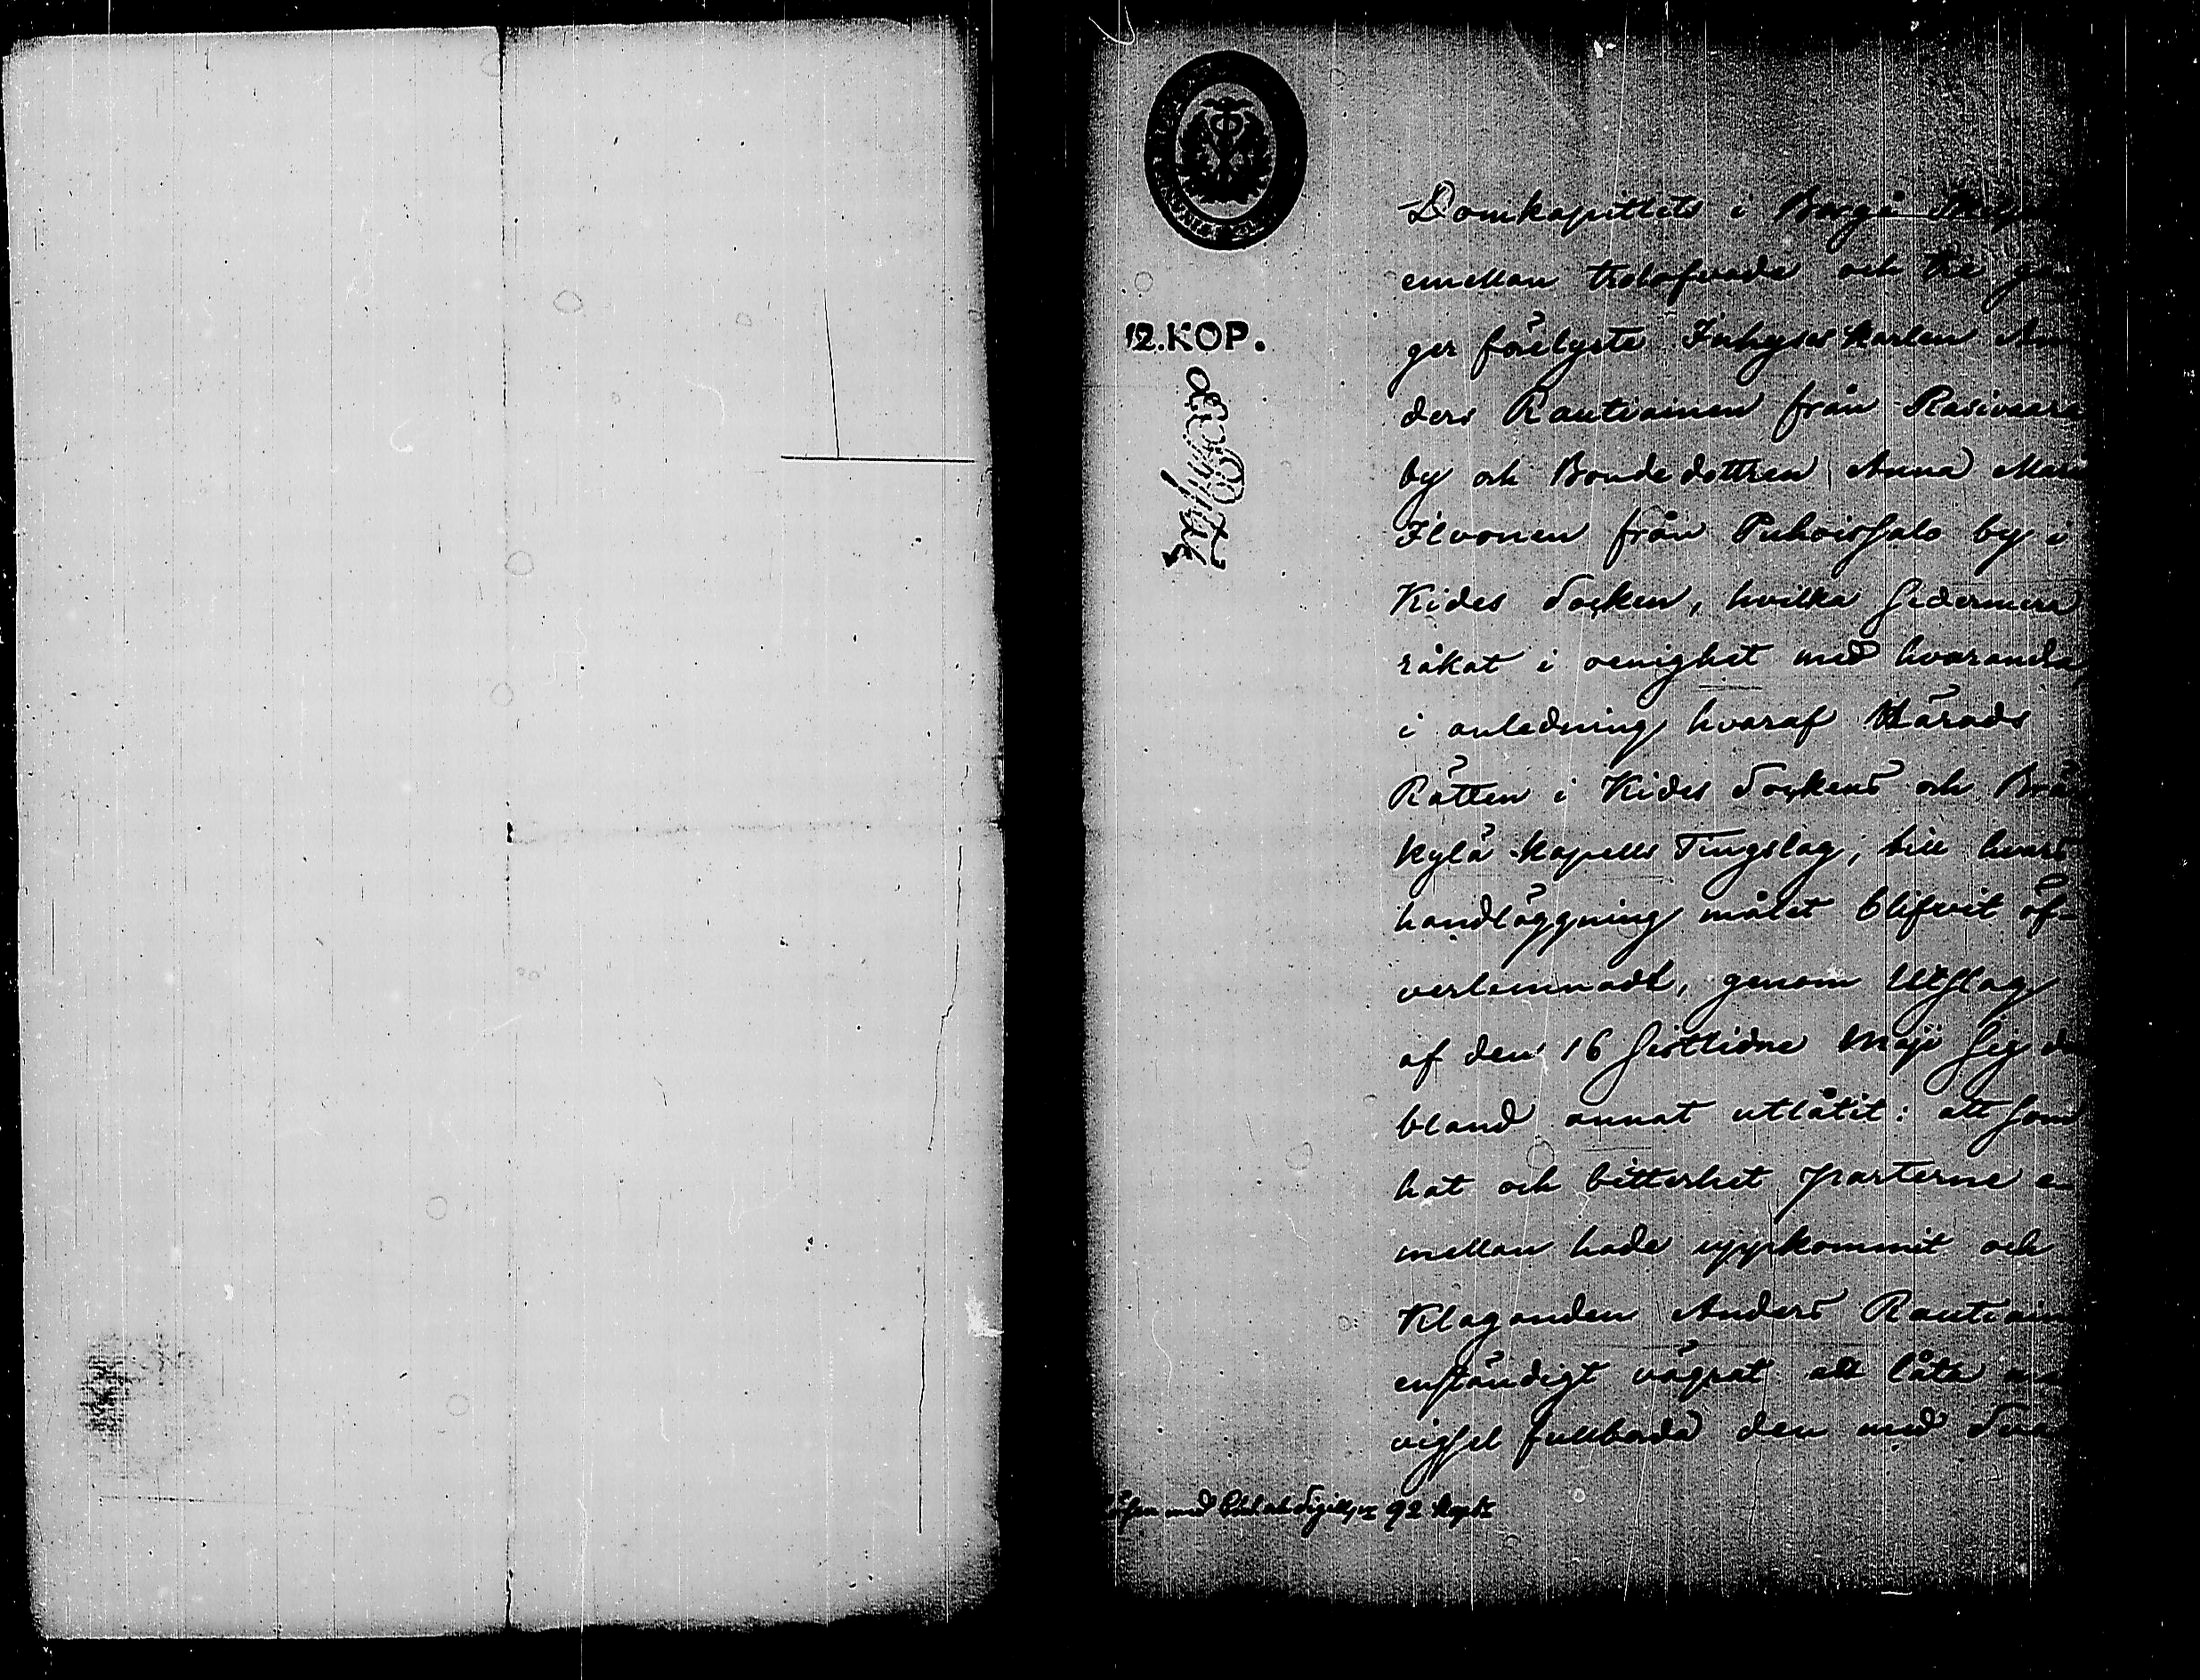 12. KOP.
Domkapitlets i Borgå
emellan trolofvade och tre gån
ger förelyste Inhyseskarlen An
ders Rautiainen från Rasivaara
by och Bondedottren Anna Mar
Ilvonen från Puhoissalo by i
Kides Socken, hvilka sidermera
råkat i oenighet med hvarandra,
i anledning hvaraf Härads
Rätten i Kides Sockens och Brä
kylä Kapells Tingslag, till hvars
handläggning målet blifvit öf-
verlemnadt, genom Utslag
af den 16 sistlidne Maji sig
bland annat utlåtit: att som
hat och bitterhet parterne e-
mellan hade uppkommit och
Klaganden Anders Rautiain
enständigt vägrat att låta
vigsel fullborda den med Sva
med 92 Kop.